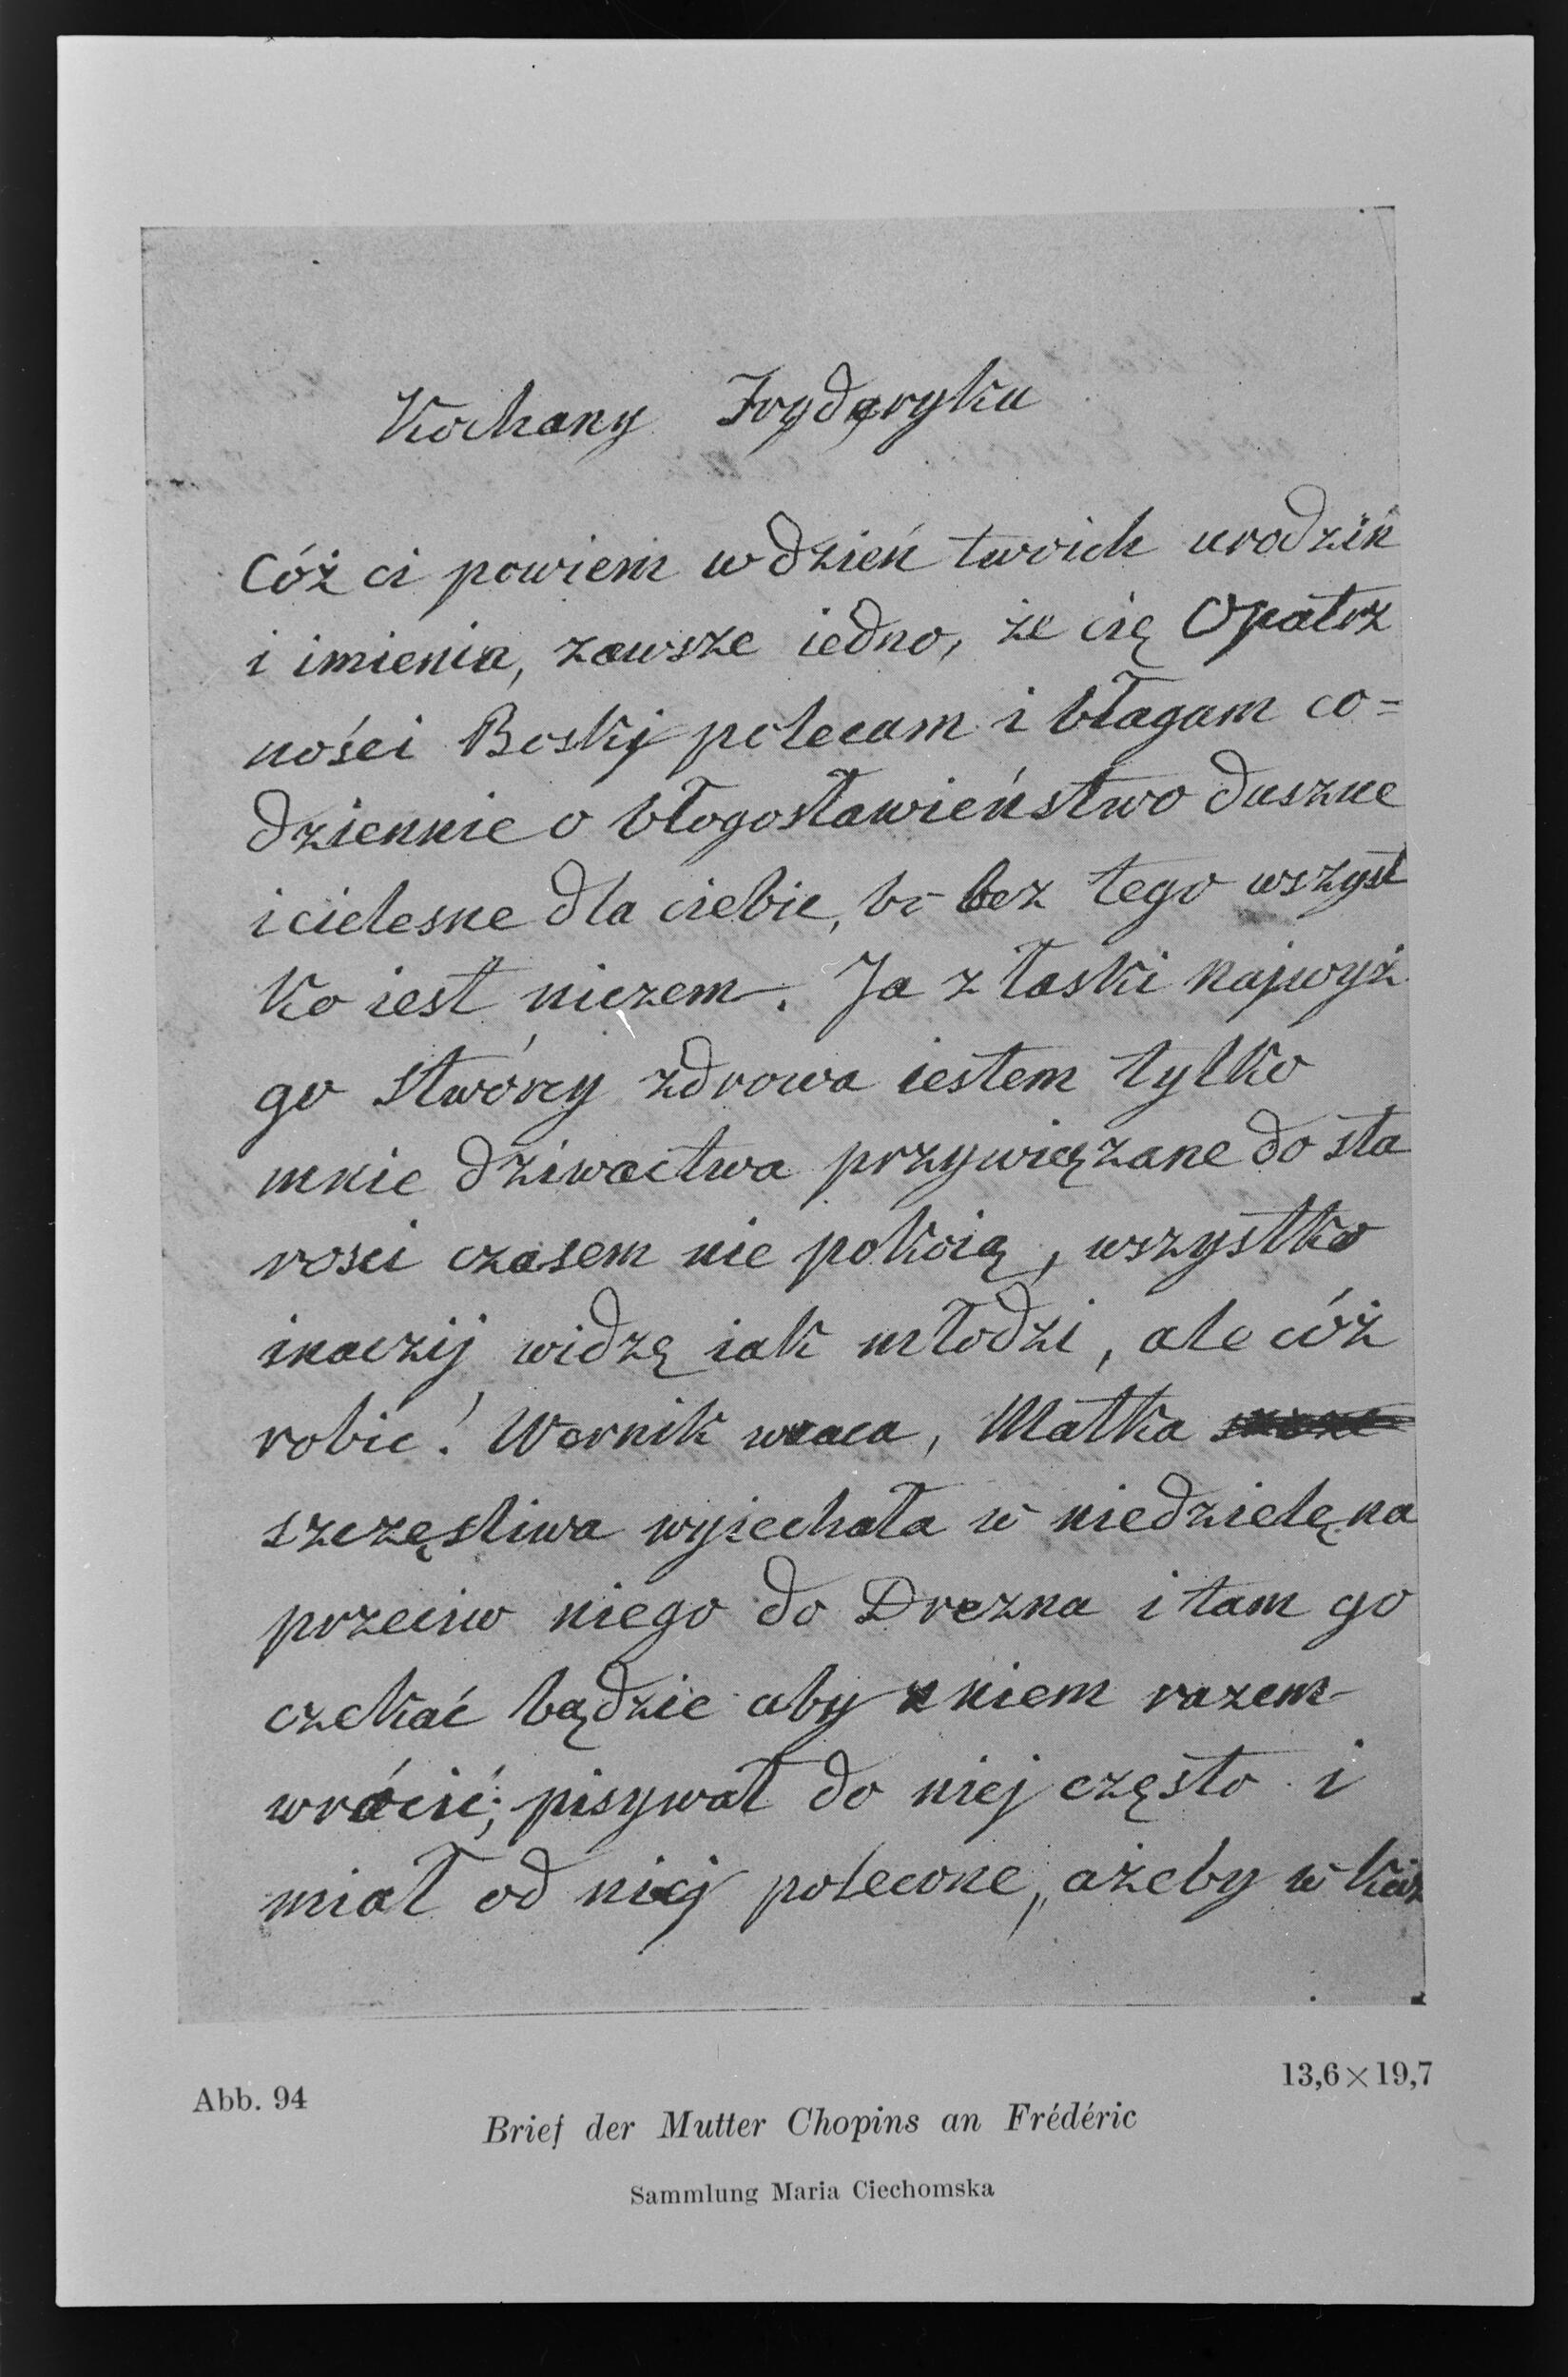 Kochany Fryderyku
Cóż ci powiem w dzień twoich urodzin
i imienia, zawsze iedno, że cię Opatrz
ności Boskij polecam i błagam co=
dziennie o błogosławieństwo duszne
i cielesne dla ciebie, bo bez tego wszyst
ko iest niczem. Ja z łaski najwyż
go stwórcy zdrowa iestem tylko
mnie dziwactwa przywiązane do sta
rosci czasem nie pokoią, wszystko
inaczij widzę iak młodzi, ale cóż
robić! Wernik wraca, Matka
szczęsliwa wyiechała w niedzielę na
przeciw niego do Drezna i tam go
czekać bądzie aby z niem razem
wrócić; pisywał do niej często i
miał od niej polecone, ażeby w każ
Abb. 94
13,6×19,7
Brief der Mutter Chopins an Frédéric
Sammlung Maria Ciechomska